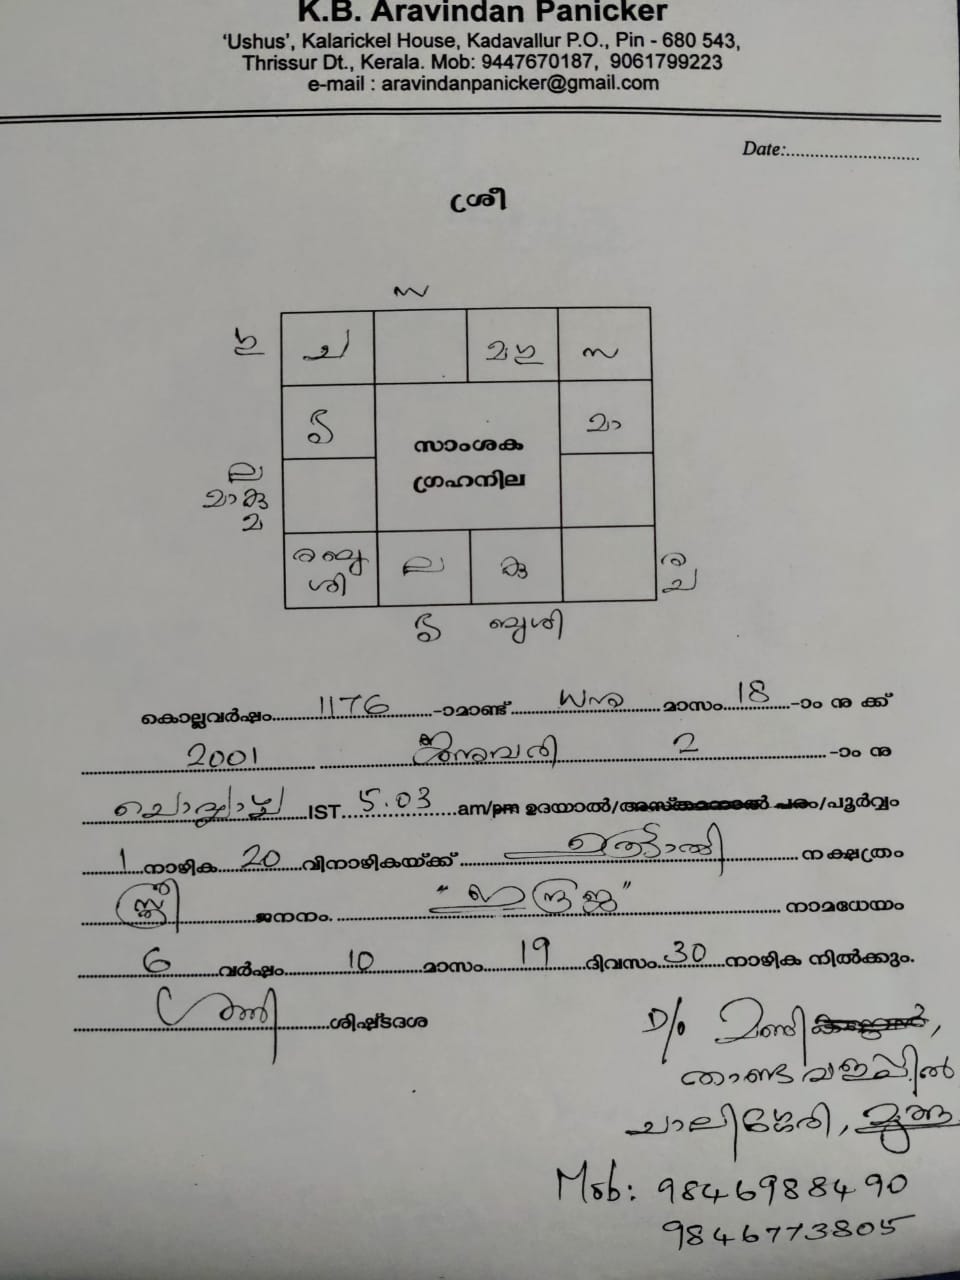 K.B. Aravindan Panicker
‘Ushus’, Kalarickel House, Kadavallur P.O., Pin - 680 543,
Thrissur Dt., Kerala. Mob: 9447670187, 9061799223
e-mail : aravindanpanicker@gmail.com
Date:..........................
ശ്രീ
സ
ഗു ച മഗു സ
മാ
സാംശക
ഗ്രഹനില
ല
മാകു
മ
ര ബു ശി ല കു ര
ച
ബുശി
കൊല്ലവർഷം 1176 -ാമാണ്ട് ധനു മാസം 18 -ാം നു ക്ക്
2001 ജനുവരി 2 -ാം നു
ചൊവ്വാഴ്ച IST 5.03 am/pm ഉദയാൽ/അസ്തമനാൽ പരം/പൂർവ്വം
1 നാഴിക 20 വിനാഴികയ്ക്ക് നക്ഷത്രം
സ്ത്രീ ജനനം. നാമധേയം
6 വർഷം 10 മാസം 19 ദിവസം 30 നാഴിക നിൽക്കും.
ശനി ശിഷ്ടദശ
D/o മണി
താണ്ടവളപ്പിൽ
ചാലിശ്ശേരി,
Mob: 9846988490
9846773805